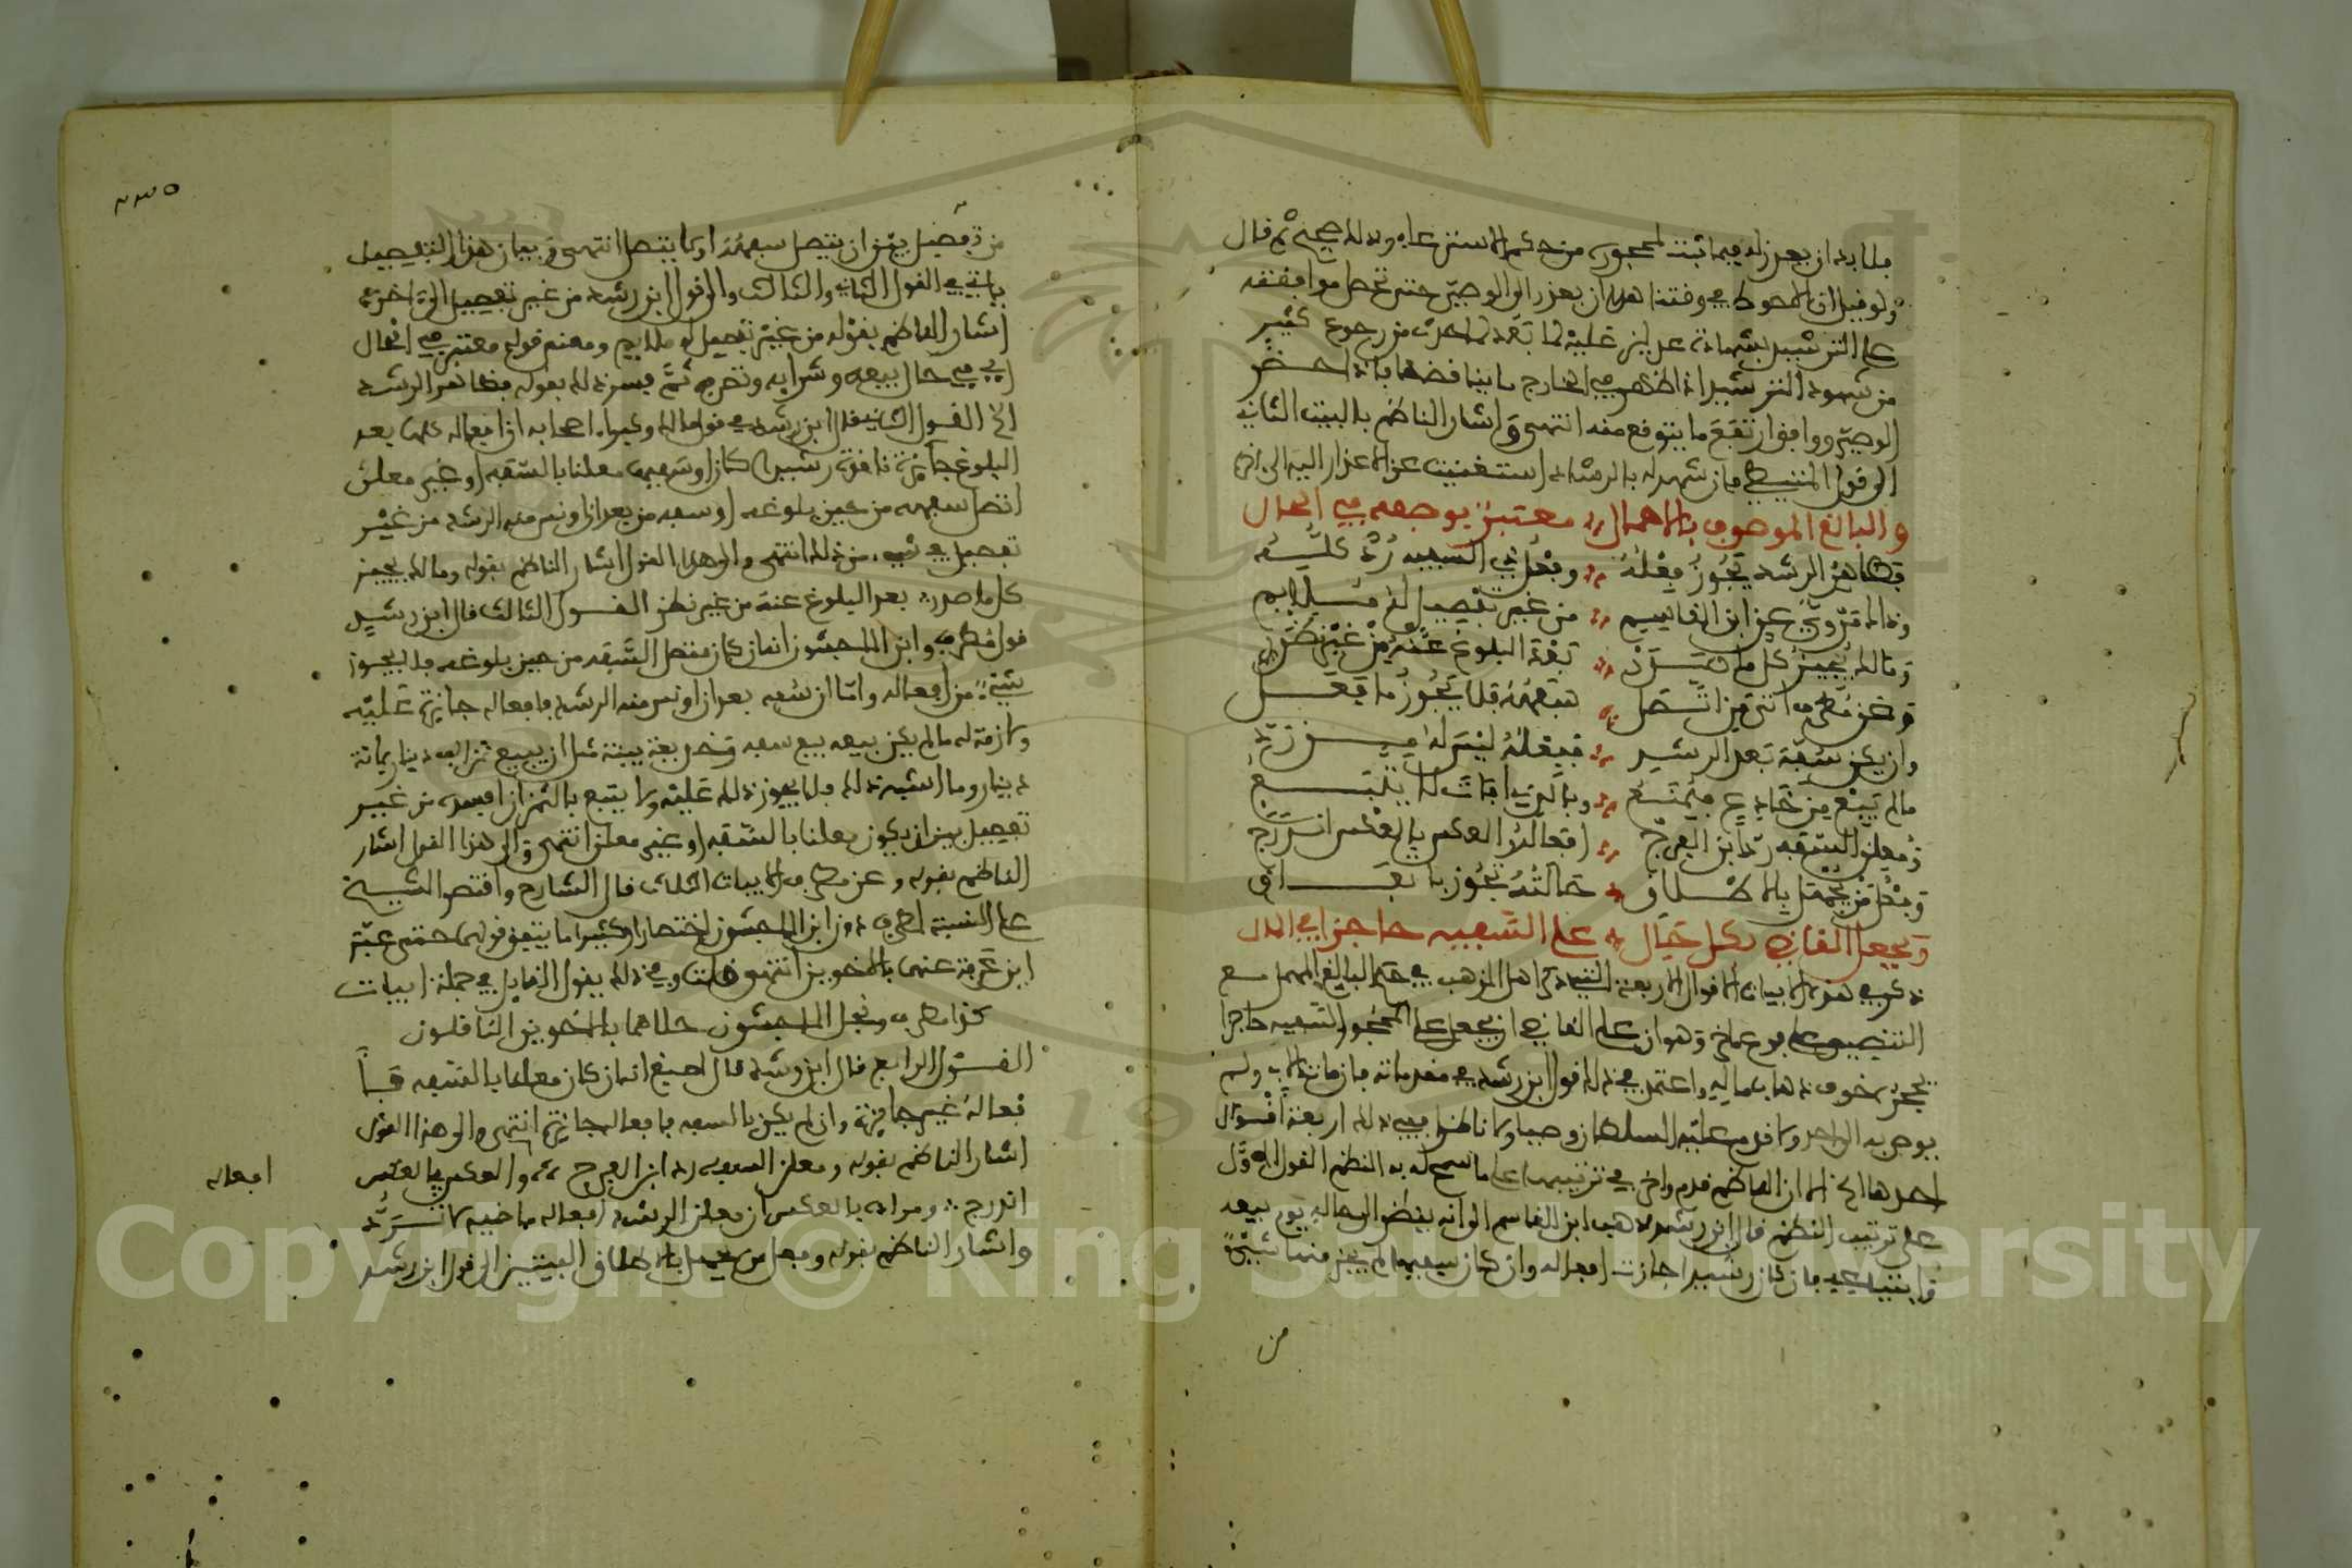 فلا بد ان يعذر له فيما ثبت لمحجوره من حكم الاسترعاء ولذلك صحيح ثم قال
ولو قيل ان الاحوط في وقتنا هذا ان يعذر الى الوصي حتى تحصل موافقته
على الترشيد بشهادة عدلين عليه لما بعد لما حدث من رجوع كثير
من شهود الترشيد اذا ظهر في الخارج ما يناقضها فاذا حضر
الوصي ووافق ارتفع ما يتوقع منه انتهى واشار الناظم بالبيت الثاني
الى قول المتيطي فان شهد له بالرشد استغنيت عن الاعذار اليه الى اخره
والبالغ الموصوف بالاهمال معتبر بوصفه في الحال
فظاهر الرشد يجوز فعله وفعل ذي السفه رد كله
وذاك مروي عن ابن القاسم من غير تفصيل له ملايم
ومالك يجيز كل ما صدر بعد البلوغ عنه من غير نظر
وعن مطرف اتى فمن اتصل سفهه فلا يجوز ما فعل
وان يكن سفه بعد الرشد ففعله ليس له من رد
ما لم يبع من خادع فيمتنع وبالذي افات لا يتبع
ومعلن السفه رد ابن الفرج افعاله والعكس في العكس اندرج
وفعل من يجهل بالاطلاق حالته يجوز باتفاق
ويجعل القاضي بكل حال على السفيه حاجرا في المال
ذكر في هذه الابيات الاقوال الاربعة التي ذكر اهل المذهب في حكم البالغ المهمل مع
التنصيص على فرع عملي وهو ان على القاضي ان يجعل على المحجور السفيه حاجرا
يحجره خوف ذهاب ماليه واعتمد في ذلك قول ابن رشد في مقدماته فان مات الاب ولم
يوص به الى احد ولا قدم عليه السلطان وصيا ولا ناظرا ففي ذلك اربعة اقوال
احدها الخ الا ان الناظم قدم واخر في ترتيبها على ما سمح له به النظم القول الاول
على ترتيب النظم قال ابن رشد مذهب ابن القاسم الى انه ينظر الى حاله يوم بيعه
وابتياعه فان كان رشيدا جازت افعاله وان كان سفيها لم يجز منها شيء
من
من تفصيل بين ان يتصل سفهه او لا يتصل انتهى وبيان هذا التفصيل
ياتي في القول الثاني والثالث والى قول ابن رشد من غير تفصيل الى اخره
اشار الناظم بقوله من غير تفصيل له ملايم ومعنى قوله معتبر في الحال
اي في حال بيعه وشرائه وتصرفه ثم فسر ذلك بقوله فظاهر الرشد
الخ القول الثاني قال ابن رشد في قول مالك وكبراء اصحابه ان افعاله كلها بعد
البلوغ جائزة نافذة رشيدا كان او سفيها معلنا بالسفه او غير معلن
اتصل سفهه من حين بلوغه او سفه من بعد ان اونس منه الرشد من غير
تفصيل في شيء من ذلك انتهى والى هذا القول اشار الناظم بقوله ومالك يجيز
كل ما صدر بعد البلوغ عنه من غير نظر القول الثالث قال ابن رشد
قول مطرف وابن الماجشون انه ان كان متصل السفه من حين بلوغه فلا يجوز
شيء من افعاله واما ان سفه بعد ان اونس منه الرشد فافعاله جائزة عليه
ولازمة له ما لم يكن بيعه بيع سفه وخديعة بينة مثل ان يبيع ثمن الف دينار بمائة
دينار وما اشبه ذلك فلا يجوز ذلك عليه ولا يتبع بالثمن ان افسده من غير
تفصيل بين ان يكون معلنا بالسفه او غير معلن انتهى والى هذا القول اشار
الناظم بقوله وعن مطرف الابيات الثلاث قال الشارح واقتصر الشيخ
على النسبة لمطرف دون ابن الماجشون اختصارا وكثيرا ما يتفق قولهما حتى عبر
ابن عرفة عنهما بالاخوين انتهى قلت وفي ذلك يقول القايل في جملة ابيات
كذا مطرف ونجل الماجشون حلاهما بالاخوين الناقلون
القول الرابع قال ابن رشد قال اصبغ انه ان كان معلنا بالسفه فا
فعاله غير جائزة وان لم يكن بالسفه فافعاله جائزة انتهى والى هذا القول
اشار الناظم بقوله ومعلن السفه رد ابن الفرج افعاله والعكس في العكس
اندرج ومراده بالعكس ان معلن الرشد افعاله ماضية لا ترد
واشار الناظم بقوله وفعل من يجهل بالاطلاق البيتين الى قول ابن رشد